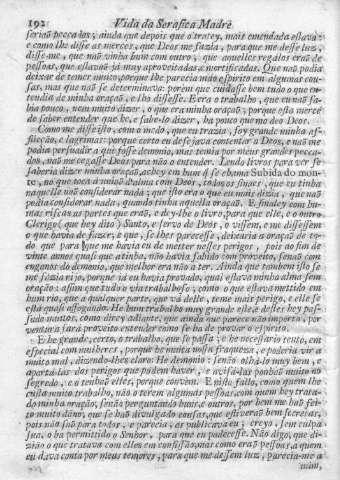 192 Vida da Serafica Madre
seriaõ peccados; ainda que depois que o tratey, mais emendada estava:
e como lhe disse as merces, que Deos me fazia, para que me desse luz,
disse-me, que naõ vinha bum com outro, que aquelles regalos eraõ de
pessoas, que estavaõ já muy aproveitadas, e mortificadas. Que naõ podia
deixar de temer muito, porque lhe parecia máo espirito em algumas cou-
sas, mas que naõ se determinava: porém que cuidasse bem tudo o que en-
tendia de minha oraçaõ, e lho dissesse. Era o trabalho, que eu naõ sa-
bia pouco, nem muito dizer, o que era minha oraçaõ; porque esta mercê
de saber entender que he, e sabe-lo dizer, ha pouco que mo deo Deos.
Como me disse isto, com o medo, que eu trazia, foy grande minha af-
flicçaõ, e lagrimas: porque certo eu desejava contentar a Deos, e naõ me
podia persuadir a que fosse demonio, mas temia por meus grandes pecca-
dos, naõ me cegasse Deos para naõ o entender. Lendo livros para ver se
saberia dizer minha oraçaõ, achey em hum q̃ se chama Subida do mon-
te, no que toca à uniaõ da alma com Deos, todos os sinaes, que eu tinha
naquelle naõ considerar nada; que isto era o que eu mais dizia, que naõ
podia considerar nada, quando tinha aquella oraçaõ. E sinaley com hu-
mas riscas as partes que eraõ, e dey-lhe o livro, para que elle, e o outro
Clerigo (que hey dito) Santo, e servo de Deos, o vissem, e me dissessem
o que havia de fazer, e que, se lhes parecesse, deixaria a oraçaõ de to-
do que para que me havia eu de meter nesses perigos, pois ao fim de
vinte annos quasi que atinha, naõ havia sahido com proveito, senaõ com
enganos do demonio, que melhor era naõ a ter. Ainda que tambem isto se
me fazia rijo, porque já eu havia provado, qual estava minha alma sem
oraçaõ: assim que tudo o via trabalhoso; como o que estava mettido em
hum rio, que a qualquer parte, que vá delle, teme mais perigo, e elle se
está quasi affogando. He hum trabalho muy grande este, e destes hey pas-
sado muitos, como direy adiante, que ainda que parece naõ importa, por
ventura fará proveito entender como se ha de provar o espirito.
E he grande, certo, o trabalho, que se passa; e he necessario tento, em
especial com mulheres, porque he muita nossa fraqueza, e poderia vir a
muito mal, dizendo-lhes claro: He demonio: senaõ olhá-lo muy bem, e
apartá-las dos perigos que podem haver, e avisá-las ponhaõ muito no
segredo, e o tenhaõ elles, porque convém. E nisto fallo, como quem lhe
custa muito trabalho, naõ o terem algumas pessoas, com quem hey trata-
do minha oraçaõ, senaõ perguntando huns, e outros, por bem me haõ fei-
to muito dãno, que se haõ divulgado cousas, que estiveraõ bem secretas,
pois naõ saõ para todos, e parecia, as publicava eu; creyo, sem culpa
sua, o ha permittido o Senhor, para que eu padecesse. Naõ digo, que di-
ziaõ o que tratava com elles em confissaõ, mas como eraõ pessoas, a quem
eu dava conta por meus temores, para que me dessem luz, parecia-me a
mim,